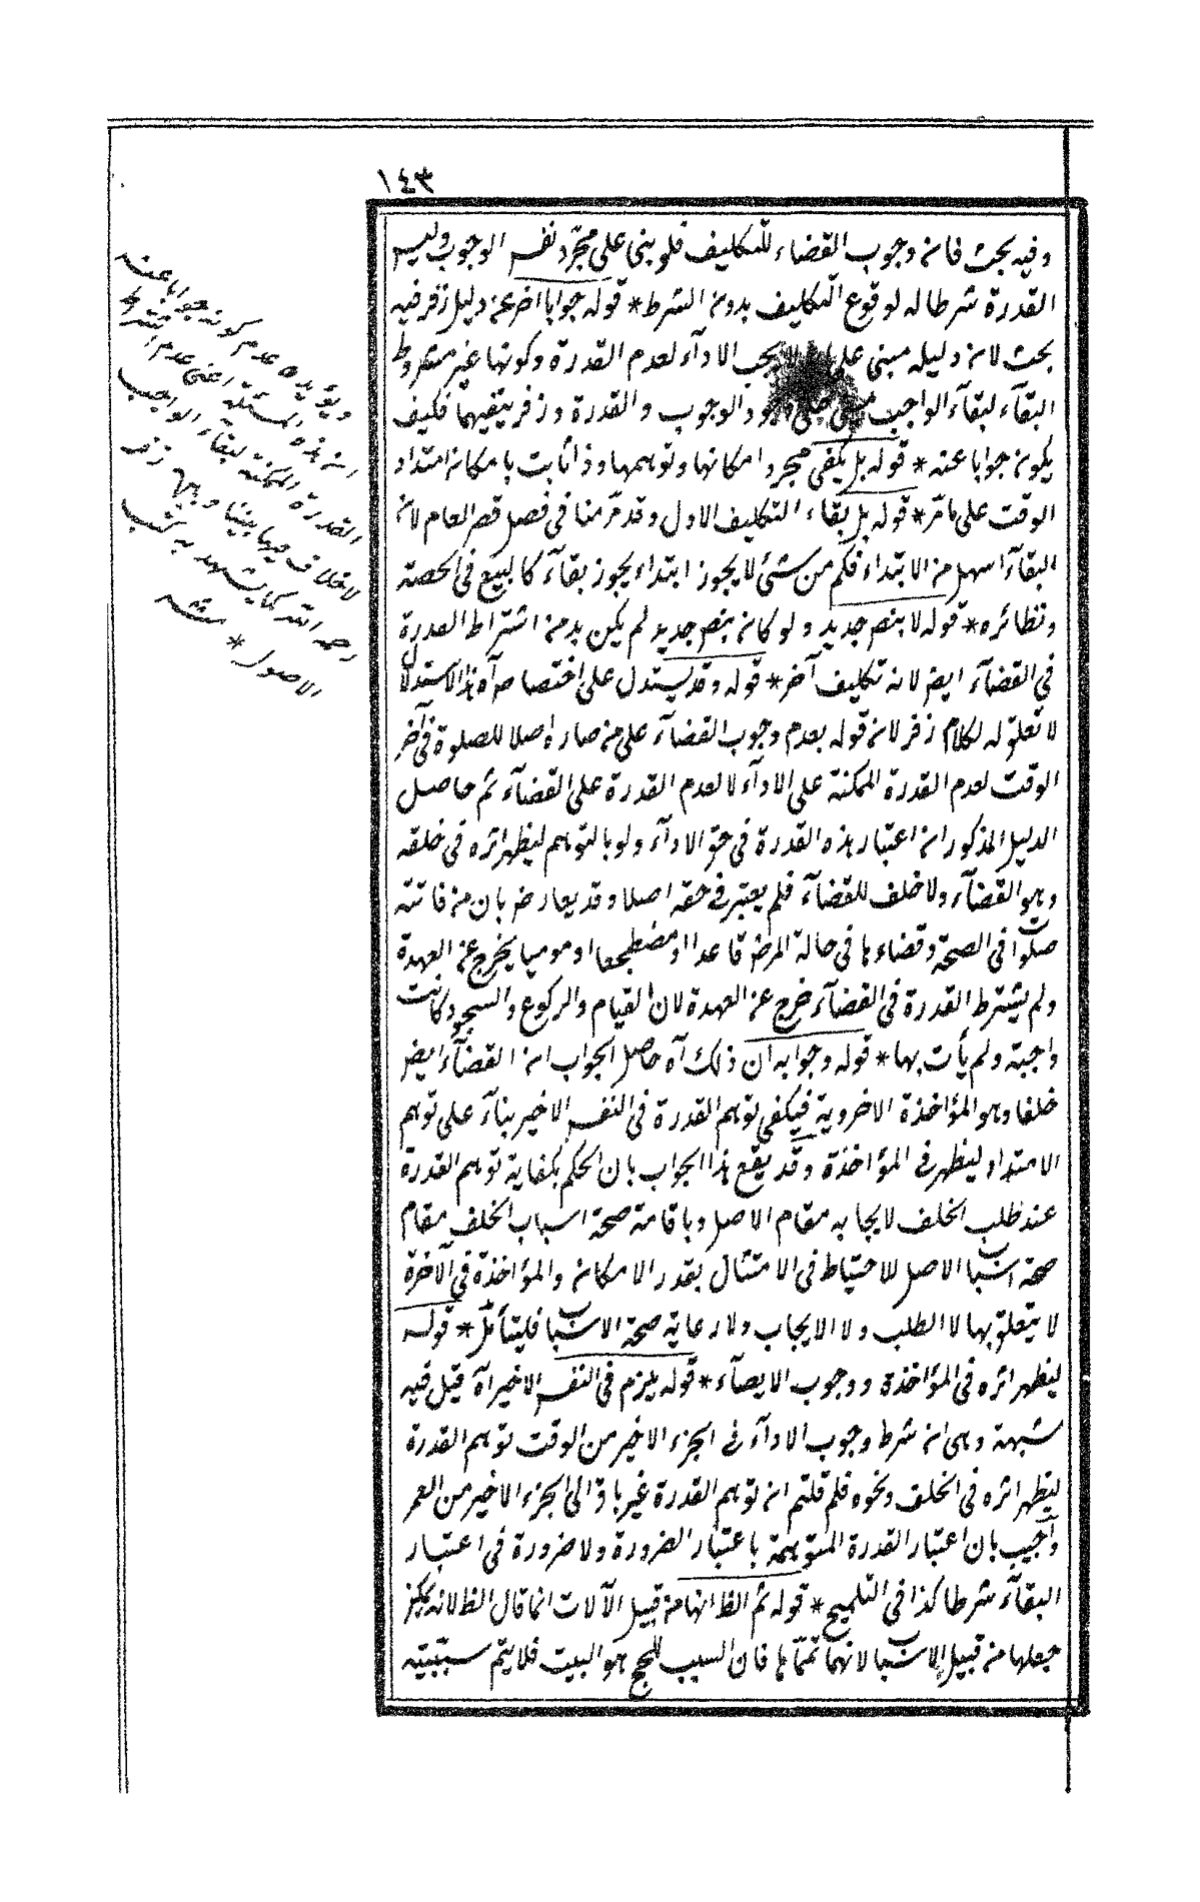 ١٤٣
وفيه بحث فان وجوب القضاء للتكليف فلو بنى على مجرد نفس الوجوب وليس
القدرة شرطا له لوقوع التكليف بدون الشرط * قوله جوابا اخر عن دليل زفر فيه
بحث لان دليله مبنى على لا يجب الاداء لعدم القدرة وكونها غير مشروط
البقاء لبقاء الواجب مبنى على وجود الوجوب والقدرة وزفر ينفيهما فكيف
يكون جوابا عنه * قوله بل يكفى مجرد امكانها وتوهمها وذا ثابت بامكان امتداد
الوقت على ما مر * قوله بل بقاء التكليف الاول وقد مر منا فى فصل قصر العام لان
البقاء اسهل من الابتداء فكم من شئ لا يجوز ابتداء يجوز بقاء كالبيع فى الحصة
ونظائره * قوله لا بنص جديد ولو كان بنص جديد لم يكن بد من اشتراط القدرة
فى القضاء ايض لانه تكليف آخر * قوله وقد يستدل على اختصاص آه هذا الاستدلال
لا تعلق له لكلام زفر لان قوله بعدم وجوب القضاء على من صار اهلا للصلوة فى آخر
الوقت لعدم القدرة الممكنة على الاداء لا لعدم القدرة على القضاء ثم حاصل
الدليل المذكور ان اعتبار هذه القدرة فى حق الاداء ولو بالتوهم ليظهر اثره فى خلفه
وهو القضاء ولا خلف للقضاء فلم يعتبر فى حقه اصلا وقد يعارض بان من فاتته
صلوات فى الصحة وقضاءها فى حالة المرض قاعدا او مضطجعا او موميا يخرج عن العهدة
ولو لم يشترط القدرة فى القضاء خرج عن العهدة لان القيام والركوع والسجود كانت
واجبة ولم يأت بها * قوله وجوابه ان ذلك آه حاصل الجواب ان القضاء ايض
خلفا وهو المؤاخذة الاخروية فيكفى توهم القدرة فى النفس الاخير بناء على توهم
الامتداد ليظهر فى المؤاخذة وقد يقع هذا الجواب بان الحكم بكفاية توهم القدرة
عند طلب الخلف لايجابه مقام الاصل وباقامة صحة اسباب الخلف مقام
صحة اسباب الاصل للاحتياط فى الامتثال بقدر الامكان والمؤاخذة فى الآخرة
لا يتعلق بها لا الطلب ولا الايجاب ولا رعاية صحة الاسباب فليتأمل * قوله
ليظهر اثره فى المؤاخذة ووجوب الايصاء * قوله يلزم فى النفس الاخير آه قيل فيه
شبهة وهى ان شرط وجوب الاداء فى الجزء الاخير من الوقت توهم القدرة
ليظهر اثره فى الخلف ونحوه فلم قلتم ان توهم القدرة غير باق الى الجزء الاخير من العمر
واجيب بان اعتبار القدرة المتوهمة باعتبار الضرورة ولا ضرورة فى اعتبار
البقاء شرطا كذا فى التلميح * قوله ثم الظ انها من قبيل الآلات انما قال الظ لانه يمكن
جعلها من قبيل الاسباب لانها تمتها فان السبب للحج هو البيت فلا يتم سببيته
ويؤيده عدم كونه جوابا عنه
ان هذه المسئلة اعنى عدم اشتراط
القدرة الممكنة لبقاء الواجب
لا خلاف فيها بيننا وبين زفر
رحمه الله كما يشهد به كتب
الاصول * منه